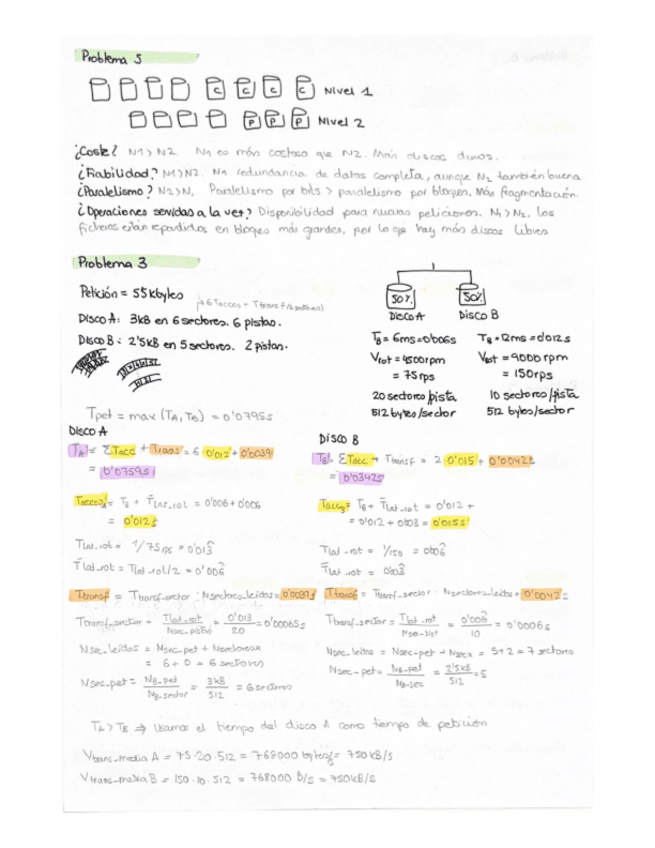 Problema 5
C C C C Nivel 1
P P P Nivel 2
¿Coste? N1 > N2. N1 es más costoso que N2. Más discos duros.
¿Fiabilidad? N1 > N2. N1 redundancia de datos completa, aunque N2 también buena
¿Paralelismo? N2 > N1 Paralelismo por bits > paralelismo por bloques. Más fragmentación.
¿Operaciones servidas a la vez? Disponibilidad para nuevas peticiones. N1 > N2. Los
ficheros están repartidos en bloques más grandes, por lo que hay más discos libres
Problema 3
Petición = 55kbytes
6 Tacces + Transf
Disco A: 3kB en 6 sectores. 6 pistas.
Disco B: 2'5kB en 5 sectores. 2 pistas.
50% 50%
Disco A Disco B
TB = 6ms = 0'006s TB = 12ms = 0'012s
Vrot = 4500rpm Vrot = 9000rpm
= 75rps = 150rps
20 sectores/pista 10 sectores/pista
512 bytes/sector 512 bytes/sector
Tpet = max (TA, TB) = 0'0795s
Disco A
TA = ΣTacc + Ttrans = 6·0'012 + 0'0039
= 0'0759s
TaccesoA = TB + T̄lat_rot = 0'006 + 0'006
= 0'012s
Tlat_rot = 1/75rps = 0'013
T̄lat_rot = Tlat_rot/2 = 0'006
Ttransf = Ttransf_sector · Nsectores_leídos = 0'0039s
Ttransf_sector = Tlat_rot / Nsec_pista = 0'013 / 20 = 0'00065s
Nsec_leídos = Nsec_pet + Nsectoresx
= 6 + 0 = 6 sectores
Nsec_pet = NB_pet / NB_sector = 3kB / 512 = 6 sectores
Disco B
TB = ΣTacc + Ttransf = 2·0'015 + 0'0042s
= 0'0342s
TaccB = TB + T̄lat_rot = 0'012 +
= 0'012 + 0'003 = 0'015s
Tlat_rot = 1/150 = 0'006
T̄lat_rot = 0'003
Ttransf = Ttransf_sector · Nsectores_leídos = 0'0042s
Ttransf_sector = Tlat_rot / Nsec_pist = 0'006 / 10 = 0'0006s
Nsec_leídos = Nsec_pet + Nsecx = 5 + 2 = 7 sectores
Nsec_pet = NB_pet / NB_sec = 2'5kB / 512 = 5
TA > TB ⇒ Usamos el tiempo del disco A como tiempo de petición
Vtrans_media A = 75·20·512 = 768000 bytes/s = 750kB/s
Vtrans_media B = 150·10·512 = 768000 B/s = 750kB/s